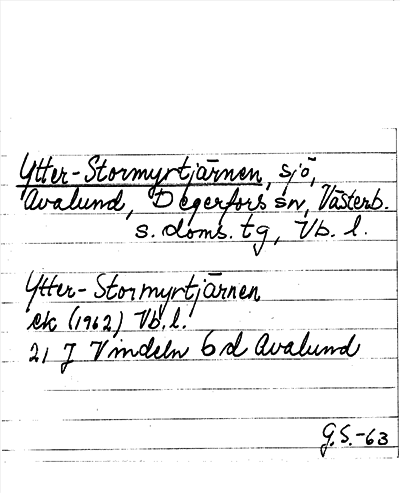 Ytter-Stormyrtjärnen, sjö,
Avalund, Degerfors sn, Västerb.
s. doms. tg, Vb. l.
Ytter-Stormyrtjärnen
ek (1962) Vb. l.
21 J Vindeln 6d Avalund
G.S.-63